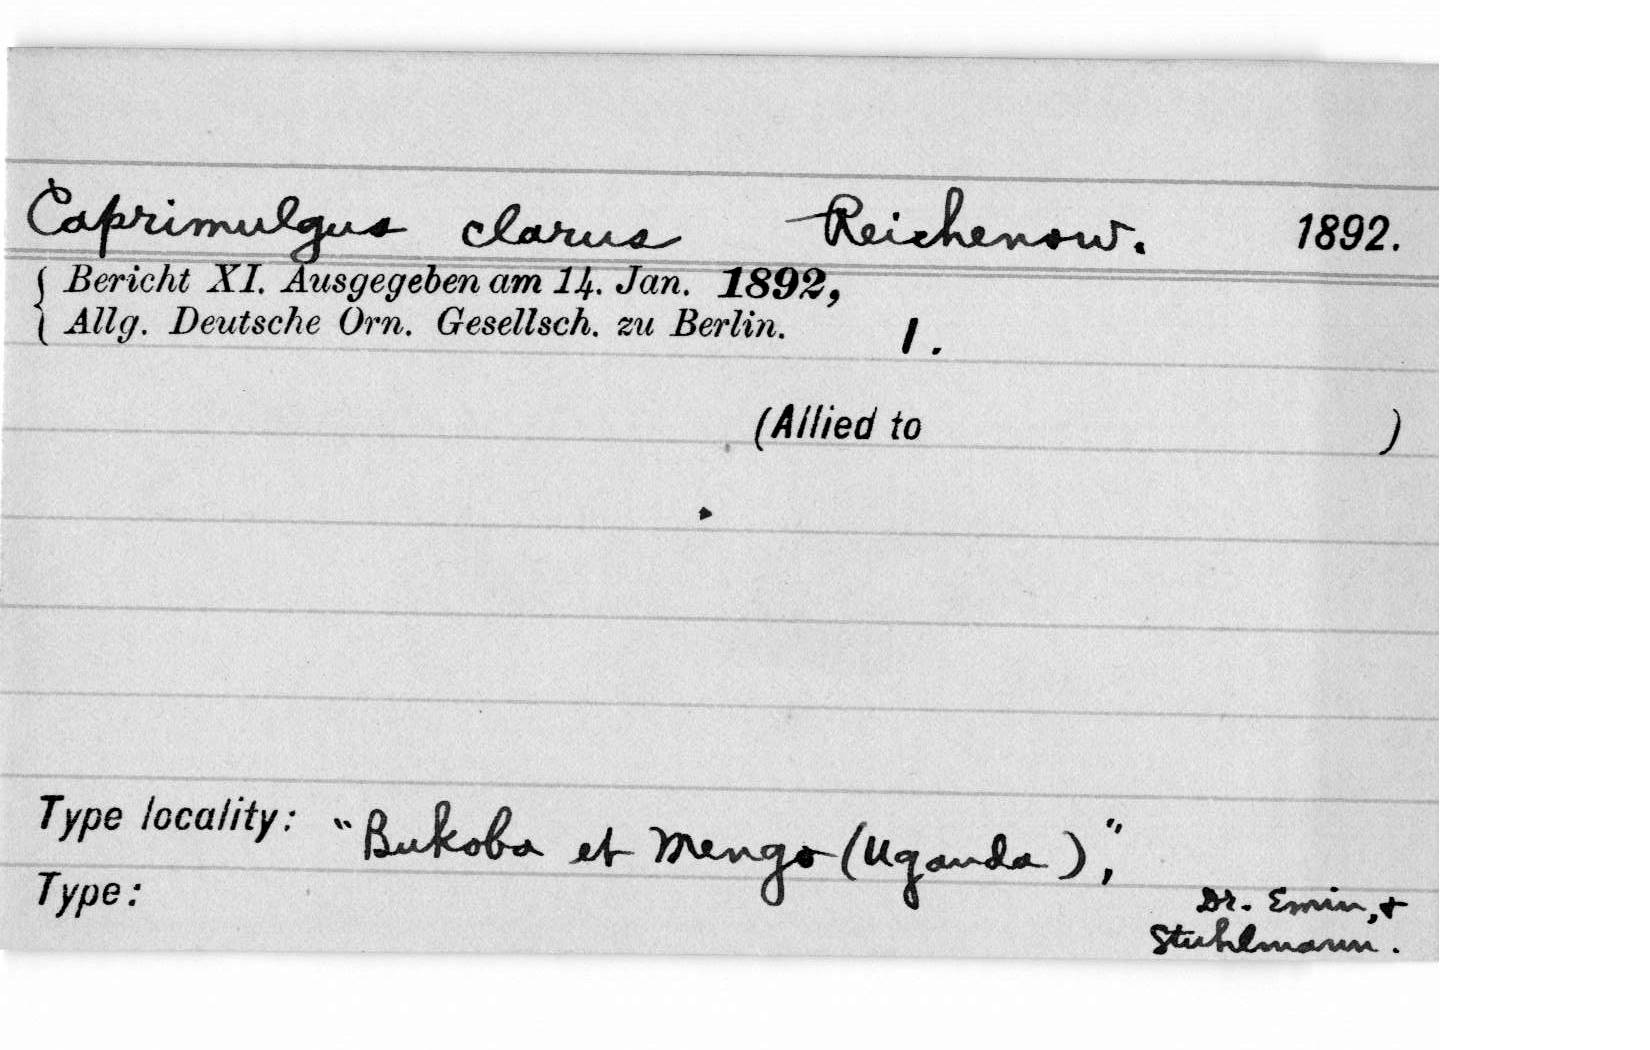 Caprimulgus clarus Reichenow. 1892.
{ Bericht XI. Ausgegeben am 14. Jan. 1892,
Allg. Deutsche Orn. Gesellsch. zu Berlin. 1.
(Allied to )
Type locality: "Bukoba et Mengo (Uganda)",
Type: Dr. Emin, &
Stuhlmann.